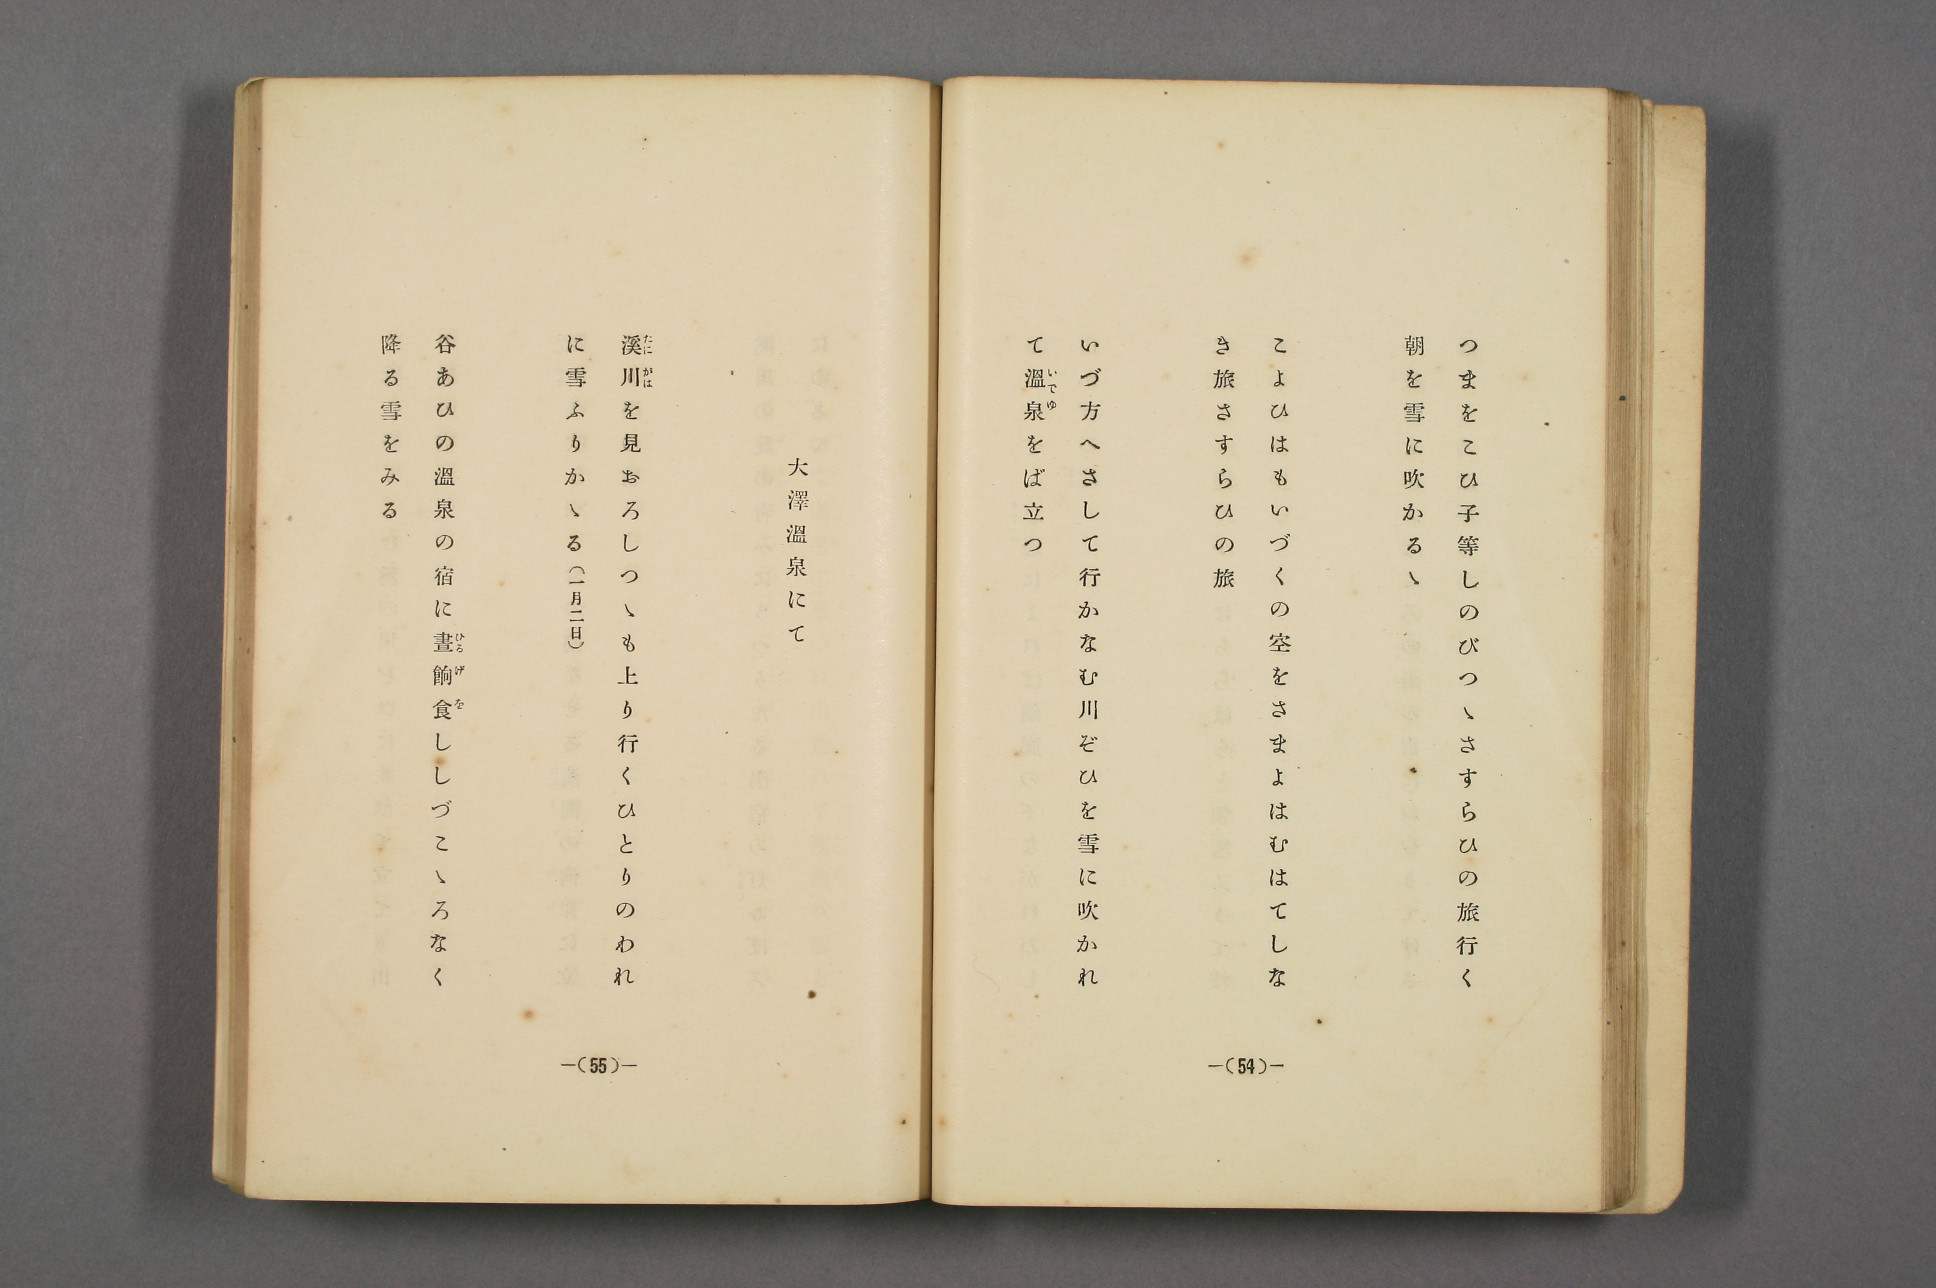 つまをこひ子等しのびつゝさすらひの旅行く
朝を雪に吹かるゝ
こよひはもいづくの空をさまよはむはてしな
き旅さすらひの旅
いづ方へさして行かなむ川ぞひを雪に吹かれ
て溫泉をば立つ
いでゆ
―(54)―
大澤溫泉にて
溪川を見おろしつゝも上り行くひとりのわれ
たにがは
に雪ふりかゝる(一月二日)
谷あひの溫泉の宿に晝餉食ししづこゝろなく
ひるげを
降る雪をみる
―(55)―